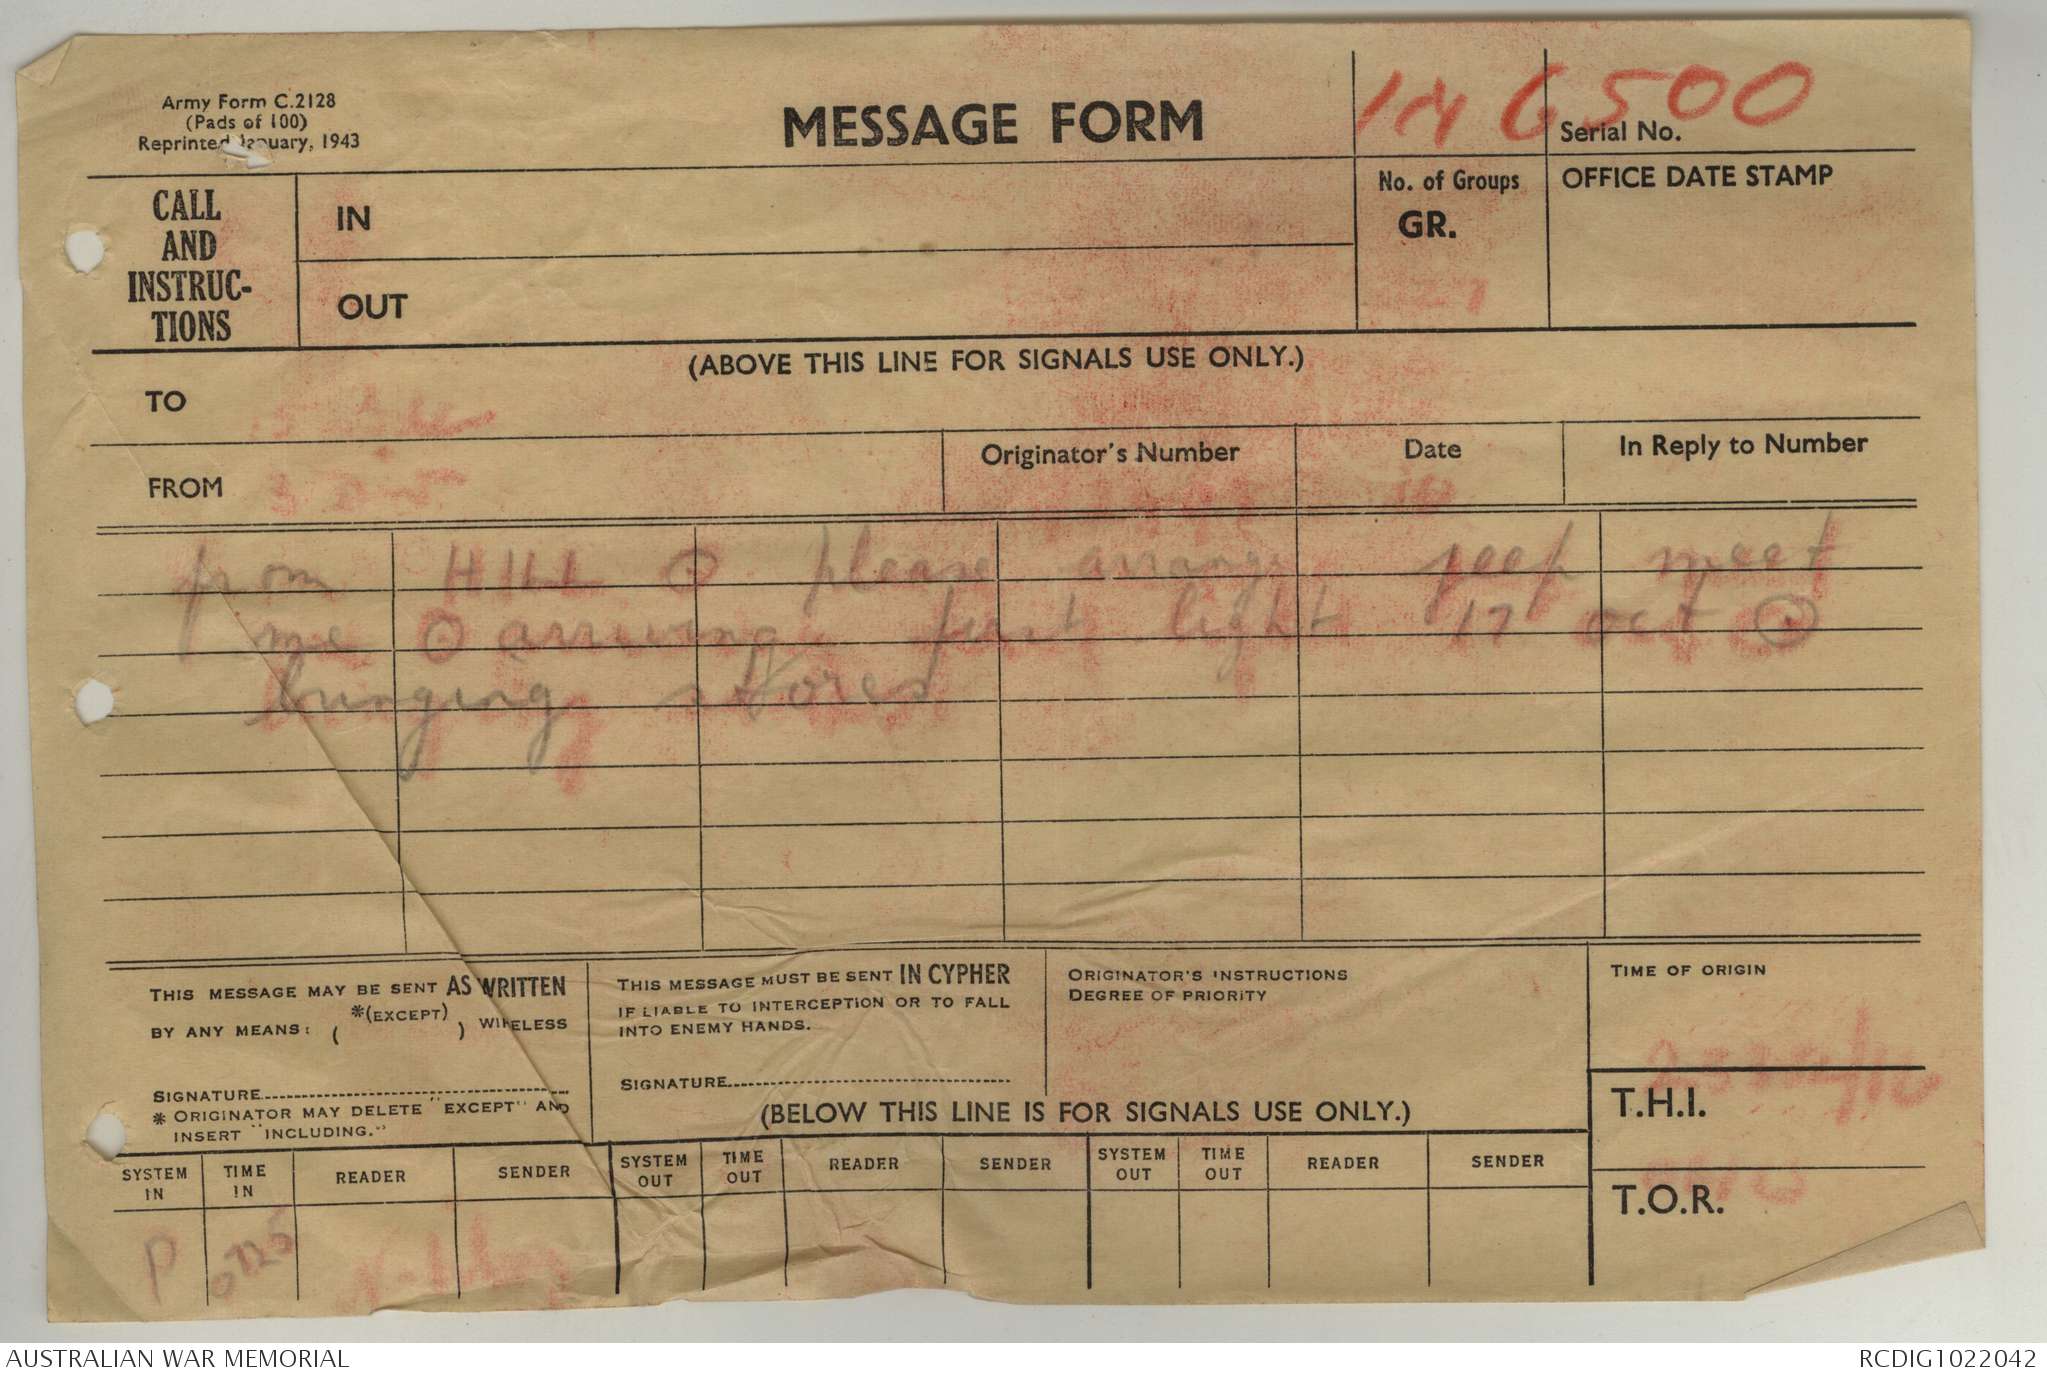 Army Form C.2128
(Pads of 100)
Reprinted January, 1943
MESSAGE FORM
6500
Serial No.
CALL AND INSTRUC- TIONS
IN
OUT
No. of Groups
GR.
OFFICE DATE STAMP
(ABOVE THIS LINE FOR SIGNALS USE ONLY.)
TO
FROM
Originator's Number
Date
In Reply to Number
from HILL ⊙ please arrange jeep meet
me ⊙ arriving first light 17 oct ⊙
bringing stores
THIS MESSAGE MAY BE SENT AS WRITTEN
BY ANY MEANS: ( *(EXCEPT) ) WIRELESS
SIGNATURE
* ORIGINATOR MAY DELETE "EXCEPT" AND
INSERT "INCLUDING."
THIS MESSAGE MUST BE SENT IN CYPHER
IF LIABLE TO INTERCEPTION OR TO FALL
INTO ENEMY HANDS.
SIGNATURE
ORIGINATOR'S INSTRUCTIONS
DEGREE OF PRIORITY
TIME OF ORIGIN
T.H.I.
T.O.R.
(BELOW THIS LINE IS FOR SIGNALS USE ONLY.)
SYSTEM IN
TIME IN
READER
SENDER
SYSTEM OUT
TIME OUT
READER
SENDER
SYSTEM OUT
TIME OUT
READER
SENDER
P
0725
AUSTRALIAN WAR MEMORIAL
RCDIG1022042